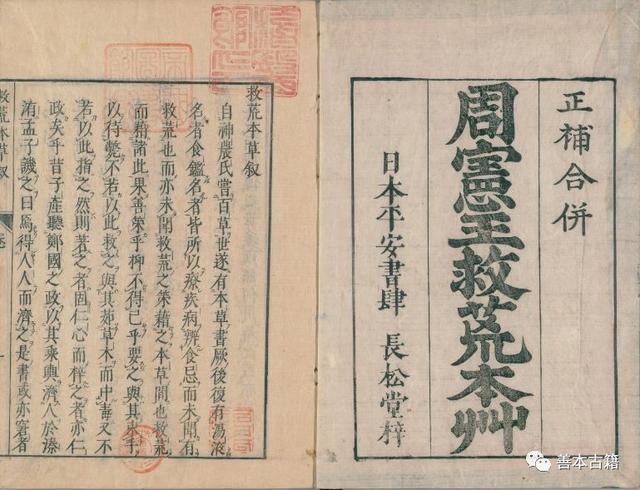 正補合併
周憲王救荒本艸
日本平安書肆 長松堂梓
救荒本草叙
自神農氏嘗百草世遂有本草書厥後復有湯液
名者食鑑名者皆所以療疾病辨食忌而未聞有
救荒也而亦未聞救荒之策藉之本草間也救荒
而藉諸此果善策乎抑不得已乎要之與其束手
以待斃不若以此救之與其茹草木而中毒又不
若以此指之然則著之者固仁心而梓之者亦仁
政矣乎昔子產聽鄭國之政以其乘輿濟人於溱
洧孟子譏之曰焉得人人而濟之是書或亦寓者
救荒本草叙
善本古籍